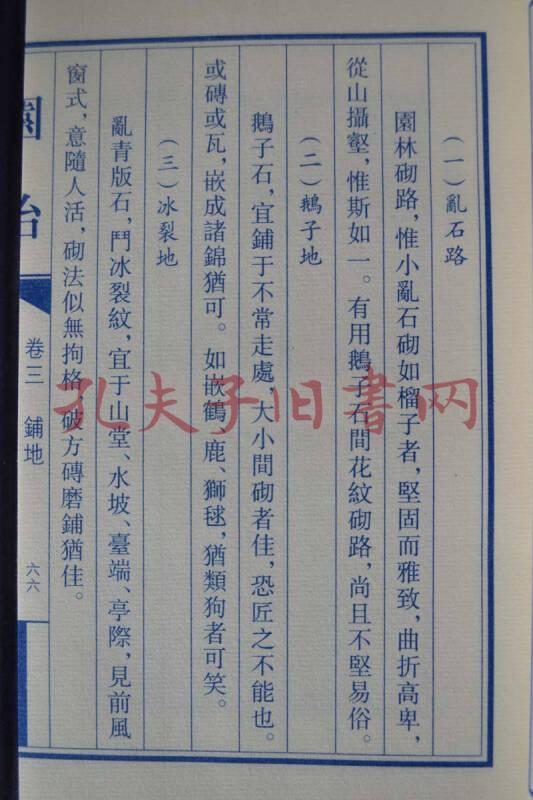 （一）亂石路
園林砌路，惟小亂石砌如榴子者，堅固而雅致，曲折高卑，
從山攝壑，惟斯如一。有用鵝子石間花紋砌路，尚且不堅易俗。
（二）鵝子地
鵝子石，宜鋪于不常走處，大小間砌者佳，恐匠之不能也。
或磚或瓦，嵌成諸錦猶可。如嵌鶴、鹿、獅毬，猶類狗者可笑。
（三）冰裂地
亂青版石，鬥冰裂紋，宜于山堂、水坡、臺端、亭際，見前風
窗式，意隨人活，砌法似無拘格，破方磚磨鋪猶佳。
園冶
卷三 鋪地
六六
孔夫子旧書网